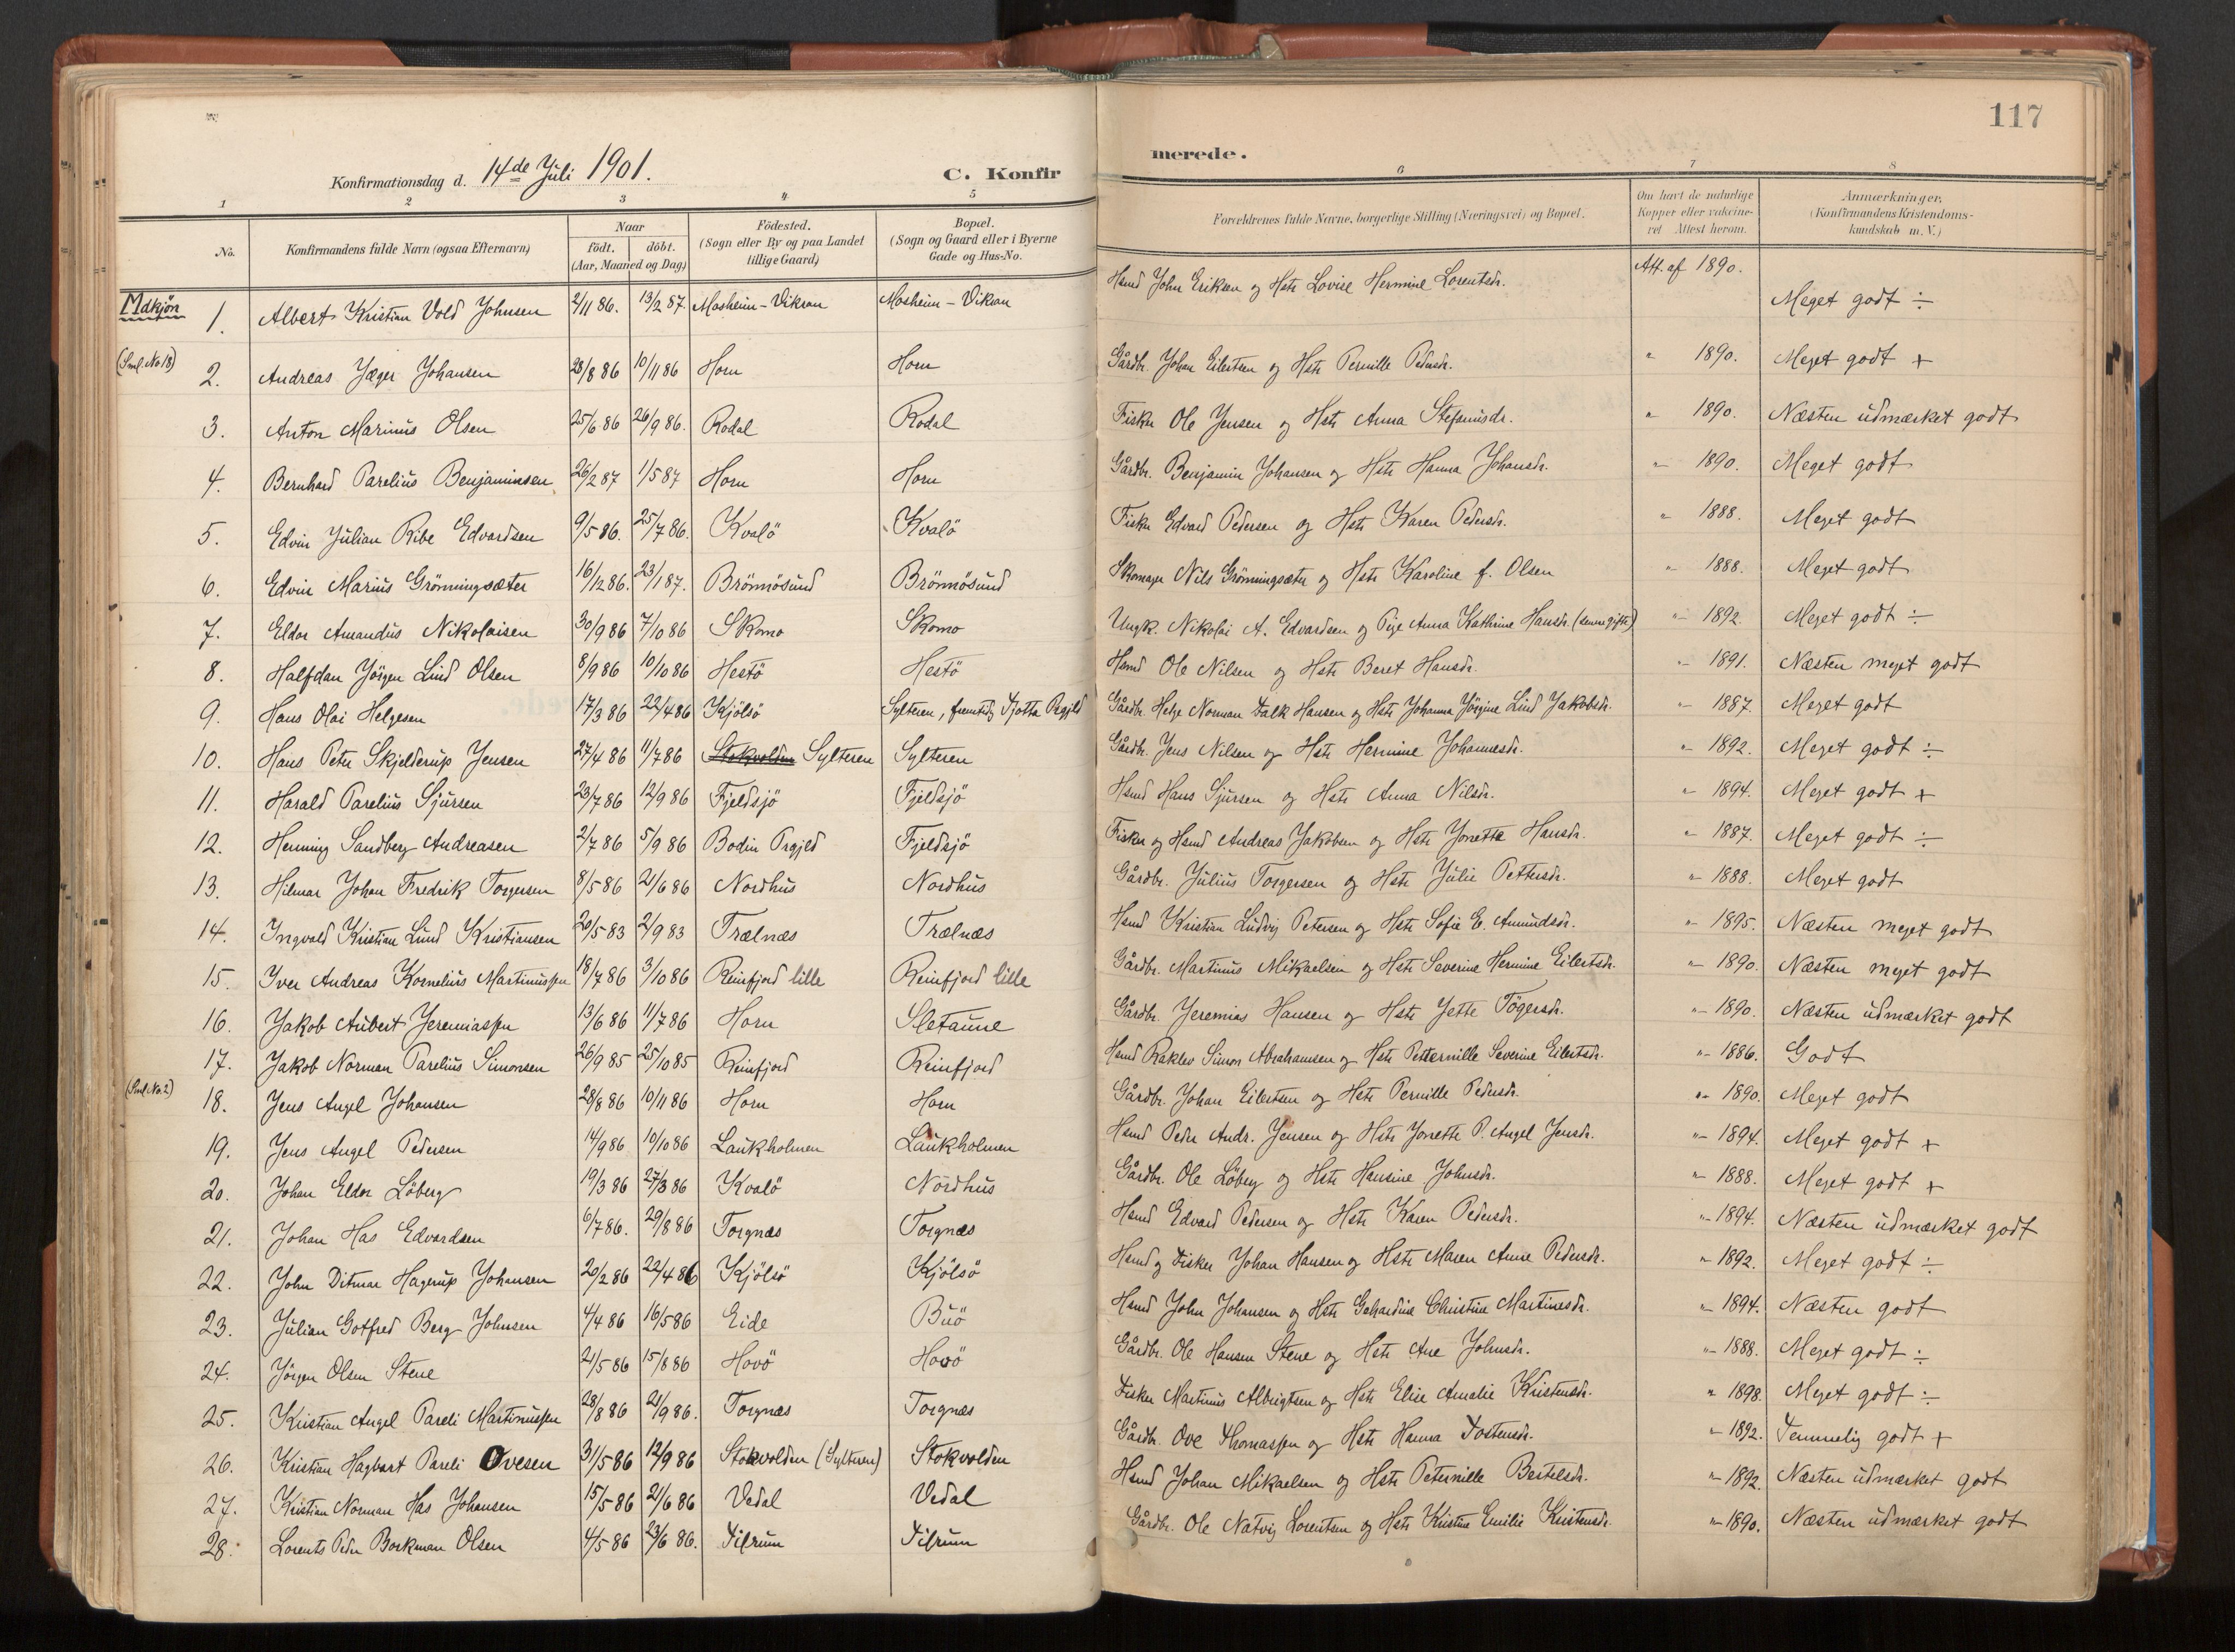 117
Konfirmationsdag d. 14de Juli 1901. C. Konfir
merede.
1 2 3 4 5 6 7 8
No. Konfirmandens fulde Navn (ogsaa Efternavn) Naar födt. döbt. (Aar, Maaned og Dag) Födested. (Sogn eller By og paa Landet tillige Gaard) Bopæl. (Sogn og Gaard eller i Byerne Gade og Hus-No.
Forældrenes fulde Navne, borgerlige Stilling (Næringsvei) og Bopæl. Om havt de naturlige Kopper eller vakcineret Attest herom. Anmærkninger. (Konfirmandens Kristendomskundskab m. V.)
Mdkjön 1. Albert Kristian Vold Johnsen 2/11 86. 13/2 87. Mosheim - Vikran Mosheim - Vikran Hsmd John Eriksen og Hstr Lovise Hermine Lorentsdr. Att. af 1890. Meget godt ÷
(Sml. No 18) 2. Andreas Jæger Johansen 28/8 86 10/11 86 Horn Horn Gårdbr. Johan Eilertsen og Hstr Pernille Pedersdr. " 1890. Meget godt +
3. Anton Marinus Olsen 25/6 86 26/9 86. Rodal Rodal Fisker Ole Jensen og Hstr Anna Stefanusdr. " 1890. Næsten udmærket godt
4. Bernhard Parelius Benjaminsen 26/2 87 1/5 87 Horn Horn Gårdbr. Benjamin Johansen og Hstr Hanna Johansdr. " 1890. Meget godt
5. Edvin Julian Ribe Edvardsen 9/5 86. 25/7 86. Kvalö Kvalö Fisker Edvard Pedersen og Hstr Karen Pedersdr. " 1888. Meget godt
6. Edvin Marius Grönningsæter 16/12 86. 23/1 87. Brönnösund Brönnösund Skomager Nils Grönningsæter og Hstr Karoline f. Olsen " 1888. Meget godt
7. Eldor Amandus Nikolaisen 30/9 86 7/10 86 Skomo Skomo Ungk. Nikolai A. Edvardsen og Pige Anna Kathrine Hansdr. (senere gifte) " 1892. Meget godt ÷
8. Halfdan Jörgen Lind Olsen 8/9 86 10/10 86 Hestö Hestö Hsmd Ole Nilsen og Hstr Beret Hansdr. " 1891. Næsten meget godt
9. Hans Olai Helgesen 17/3 86 22/4 86 Kjölsö Sylteren, fremtidig Tjøtta Prgjld Gårdbr. Helge Norman Falk Hansen og Hstr Johanna Jörgine Lind Jakobsdr. " 1887. Meget godt
10. Hans Peter Skjelderup Jensen 27/4 86 11/7 86 Stokvolden Sylteren Sylteren Gårdbr. Jens Nilsen og Hstr Hermine Johannesdr. " 1892. Meget godt ÷
11. Harald Parelius Sjursen 23/7 86 12/9 86 Fjeldsjö Fjeldsjö Hsmd Hans Sjursen og Hstr Anna Nilsdr. " 1894. Meget godt +
12. Henning Sandberg Andreasen 2/7 86 5/9 86 Bodin Prgjld Fjeldsjö Fisker og Hsmd Andreas Jakobsen og Hstr Jonette Hansdr. " 1887. Meget godt ÷
13. Hilmar Johan Fredrik Torgersen 8/5 86 21/6 86 Nordhus Nordhus Gårdbr. Julius Torgersen og Hstr Julie Pettersdr. " 1888. Meget godt
14. Ingvald Kristian Lund Kristiansen 20/5 83 2/9 83 Trælnæs Trælnæs Hsmd Kristian Ludvig Petersen og Hstr Sofie E. Amundsdr. " 1895. Næsten meget godt
15. Iver Andreas Kornelius Martinussen 18/7 86 3/10 86 Reinfjord lille Reinfjord lille Gårdbr. Martinus Mikaelsen og Hstr Severine Hermine Eilertsdr. " 1890. Næsten meget godt
16. Jakob Aubert Jeremiassen 13/6 86 11/7 86 Horn Sletaune Gårdbr. Jeremias Hansen og Hstr Jette Tögersdr. " 1890. Næsten udmærket godt
17. Jakob Norman Parelius Simonsen 26/9 85 25/10 85 Reinfjord Reinfjord Hsmd Raklev Simon Abrahamsen og Hstr Petternille Severine Eilertsdr. " 1886. Godt
(Sml. No 2) 18. Jens Angel Johansen 28/8 86 10/11 86 Horn Horn Gårdbr. Johan Eilertsen og Hstr Pernille Pedersdr. " 1890. Meget godt
19. Jens Angel Pedersen 14/9 86 10/10 86 Laukholmen Laukholmen Hsmd Peder Andr. Jensen og Hstr Jonette P. Angel Jensdr. " 1894. Meget godt +
20. Johan Eldor Löberg 19/3 86 27/3 86 Kvalö Nordhus Gårdbr. Ole Löberg og Hstr Hansine Johnsdr. " 1888. Meget godt +
21. Johan Has Edvardsen 6/7 86. 29/8 86 Torgnæs Torgnæs Hsmd Edvard Pedersen og Hstr Karen Pedersdr. " 1894. Næsten udmærket godt
22. John Ditmar Hagerup Johansen 20/2 86 22/4 86 Kjölsö Kjölsö Hsmd og Fisker Johan Hansen og Hstr Maren Anne Pedersdr. " 1892. Meget godt ÷
23. Julian Gotfred Berg Johnsen 4/4 86 16/5 86 Eide Buö Hsmd John Johansen og Hstr Gehardine Christine Martinesdr. " 1894. Næsten godt
24. Jörgen Olsen Stene 21/5 86 15/8 86 Hovö Hovö Gårdbr. Ole Hansen Stene og Hstr Ane Johnsdr. " 1888. Meget godt ÷
25. Kristian Angel Pareli Martinussen 28/8 86 21/9 86. Torgnæs Torgnæs Fisker Martinus Albrigtsen og Hstr Elise Amalie Kristensdr. " 1898. Meget godt ÷
26. Kristian Hagbart Pareli Ovesen 31/5 86 12/9 86 Stokvolden (Sylteren) Stokvolden Gårdbr. Ove Thomassen og Hstr Hanna Tostensdr. " 1892. Temmelig godt +
27. Kristian Norman Has Johansen 15/5 86 21/6 86 Vedal Vedal Hsmd Johan Mikaelsen og Hstr Peternille Bertelsdr. " 1892. Næsten udmærket godt
28. Lorents Peder Borkman Olsen 4/5 86 23/6 86. Tilrum Tilrum Gårdbr. Ole Natvig Lorentsen og Hstr Kristine Emilie Kristensdr. " 1890. Næsten udmærket godt